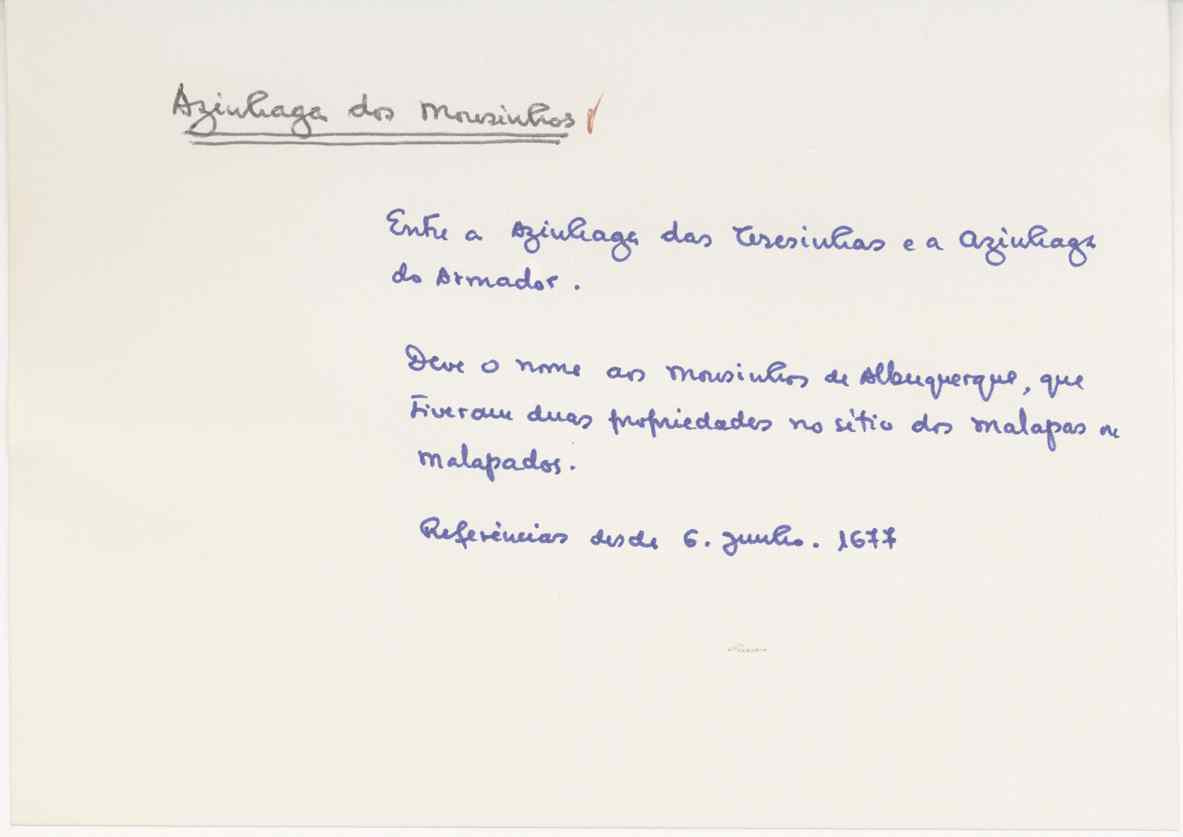 Azinhaga dos Mousinhos
Entre a Azinhaga das Teresinhas e a Azinhaga
do Armador.
Deve o nome aos Mousinhos de Albuquerque, que
tiveram duas propriedades no sítio dos Malapas ou
Malapados.
Referências desde 6. Junho. 1677